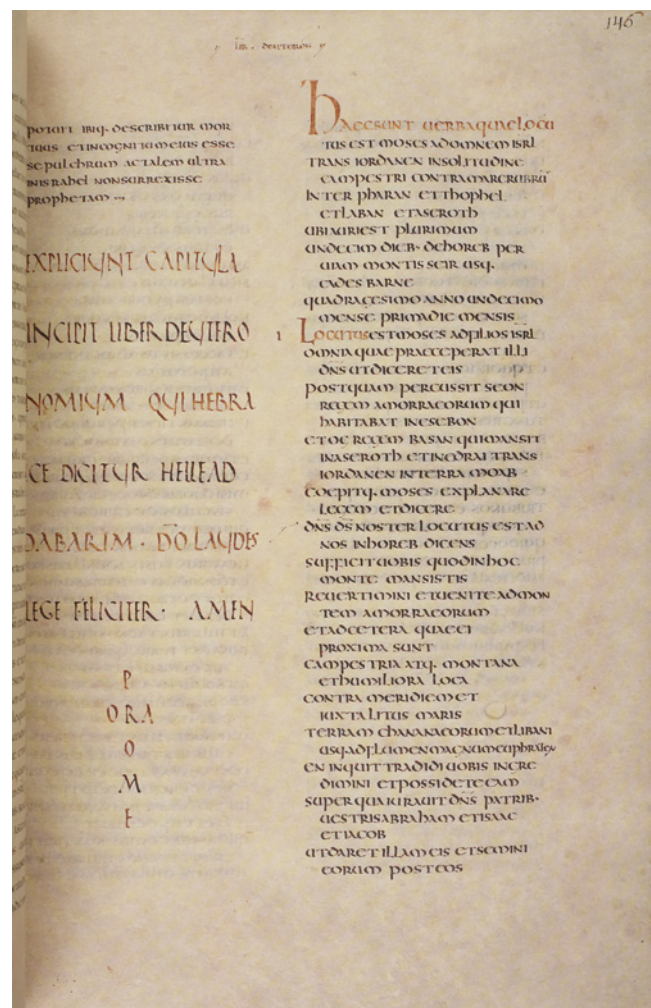 146
LIB · DEUTERON
POTATI IBIQ· DESCRIBITUR MOR
TUUS ET INCOGNITUM EIUS ESSE
SEPULCHRUM AC TALEM ULTRA
IN ISRAHEL NON SURREXISSE
PROPHETAM
EXPLICIUNT CAPITULA
INCIPIT LIBER DEUTERO
NOMIUM QUI HEBRA
ICE DICITUR HELLEAD
DABARIM · DO LAUDES
LEGE FELICITER · AMEN
P
ORA
O
M
E
HAEC SUNT UERBA QUAE LOCU
TUS EST MOSES AD OMNEM ISRL
TRANS IORDANEN IN SOLITUDINE
CAMPESTRI CONTRA MARE RUBRU
INTER PHARAN ET THOPHEL
ET LABAN ET ASEROTH
UBI AURI EST PLURIMUM
UNDECIM DIEB· DE HOREB PER
UIAM MONTIS SEIR USQ·
CADES BARNE
QUADRAGESIMO ANNO UNDECIMO
MENSE PRIMA DIE MENSIS
I LOCUTUS EST MOSES AD FILIOS ISRL
OMNIA QUAE PRAECEPERAT ILLI
DNS UT DICERET EIS
POSTQUAM PERCUSSIT SEON
REGEM AMORRAEORUM QUI
HABITABAT IN ESEBON
ET OG REGEM BASAN QUI MANSIT
IN ASEROTH ET IN EDRAI TRANS
IORDANEN IN TERRA MOAB
COEPITQ· MOSES EXPLANARE
LEGEM ET DICERE
DNS DS NOSTER LOCUTUS EST AD
NOS IN HOREB DICENS
SUFFICIT UOBIS QUOD IN HOC
MONTE MANSISTIS
REUERTIMINI ET UENITE AD MON
TEM AMORRAEORUM
ET AD CETERA QUAE EI
PROXIMA SUNT
CAMPESTRIA ATQ· MONTANA
ET HUMILIORA LOCA
CONTRA MERIDIEM ET
IUXTA LITUS MARIS
TERRAM CHANANAEORUM ET LIBANI
USQ· AD FLUMEN MAGNUM EUPHRATEN
EN INQUIT TRADIDI UOBIS INGRE
DIMINI ET POSSIDETE EAM
SUPER QUA IURAUIT DNS PATRIB·
UESTRIS ABRAHAM ET ISAAC
ET IACOB
UT DARET ILLAM EIS ET SEMINI
EORUM POST EOS